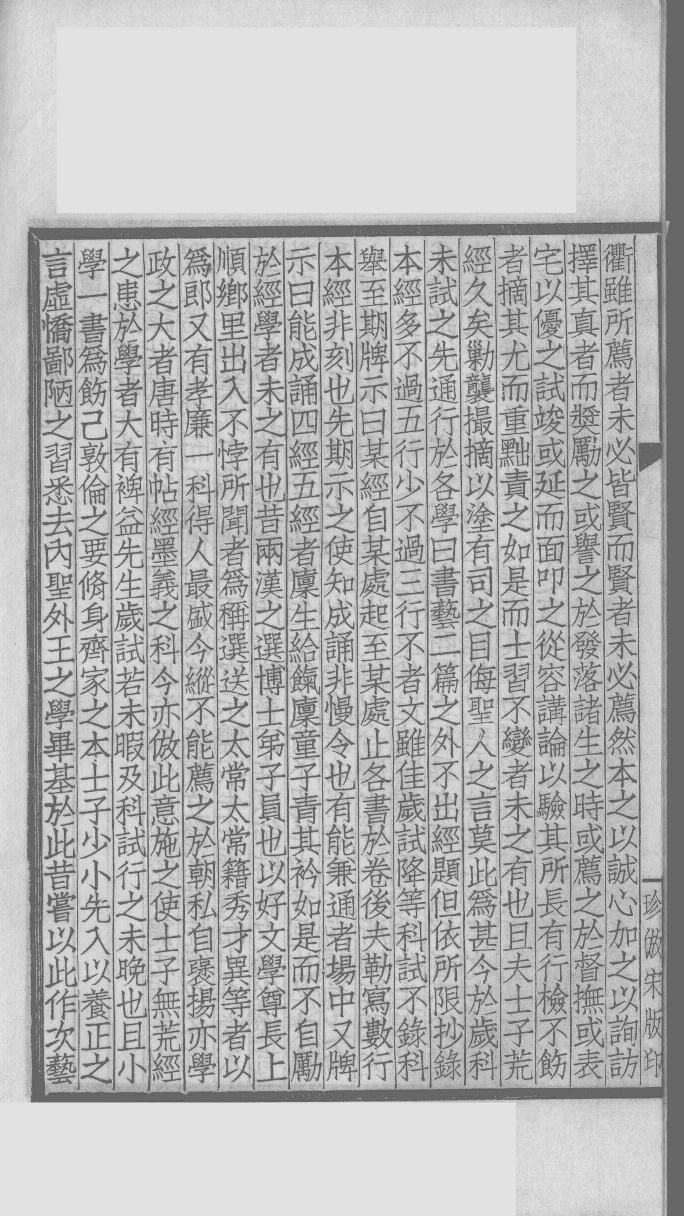 衢雖所薦者未必皆賢而賢者未必薦然本之以誠心加之以詢訪
擇其真者而獎勵之或譽之於發落諸生之時或薦之於督撫或表
宅以優之試竣或延而面叩之從容講論以驗其所長有行檢不飭
者摘其尤而重黜責之如是而士習不變者未之有也且夫士子荒
經久矣勦襲撮摘以塗有司之目侮聖人之言莫此爲甚今於歲科
未試之先通行於各學曰書藝二篇之外不出經題但依所限抄錄
本經多不過五行少不過三行不者文雖佳歲試降等科試不錄科
舉至期牌示曰某經自某處起至某處止各書於卷後夫勒寫數行
本經非刻也先期示之使知成誦非慢令也有能兼通者場中又牌
示曰能成誦四經五經者廩生給餼廩童子青其衿如是而不自勵
於經學者未之有也昔兩漢之選博士弟子員也以好文學尊長上
順鄉里出入不悖所聞者爲稱選送之太常太常籍秀才異等者以
爲郎又有孝廉一科得人最盛今縱不能薦之於朝私自襃揚亦學
政之大者唐時有帖經墨義之科今亦倣此意施之使士子無荒經
之患於學者大有裨益先生歲試若未暇及科試行之未晚也且小
學一書爲飭己敦倫之要脩身齊家之本士子少小先入以養正之
言虛憍鄙陋之習悉去內聖外王之學畢基於此昔嘗以此作次藝
珍倣宋版印